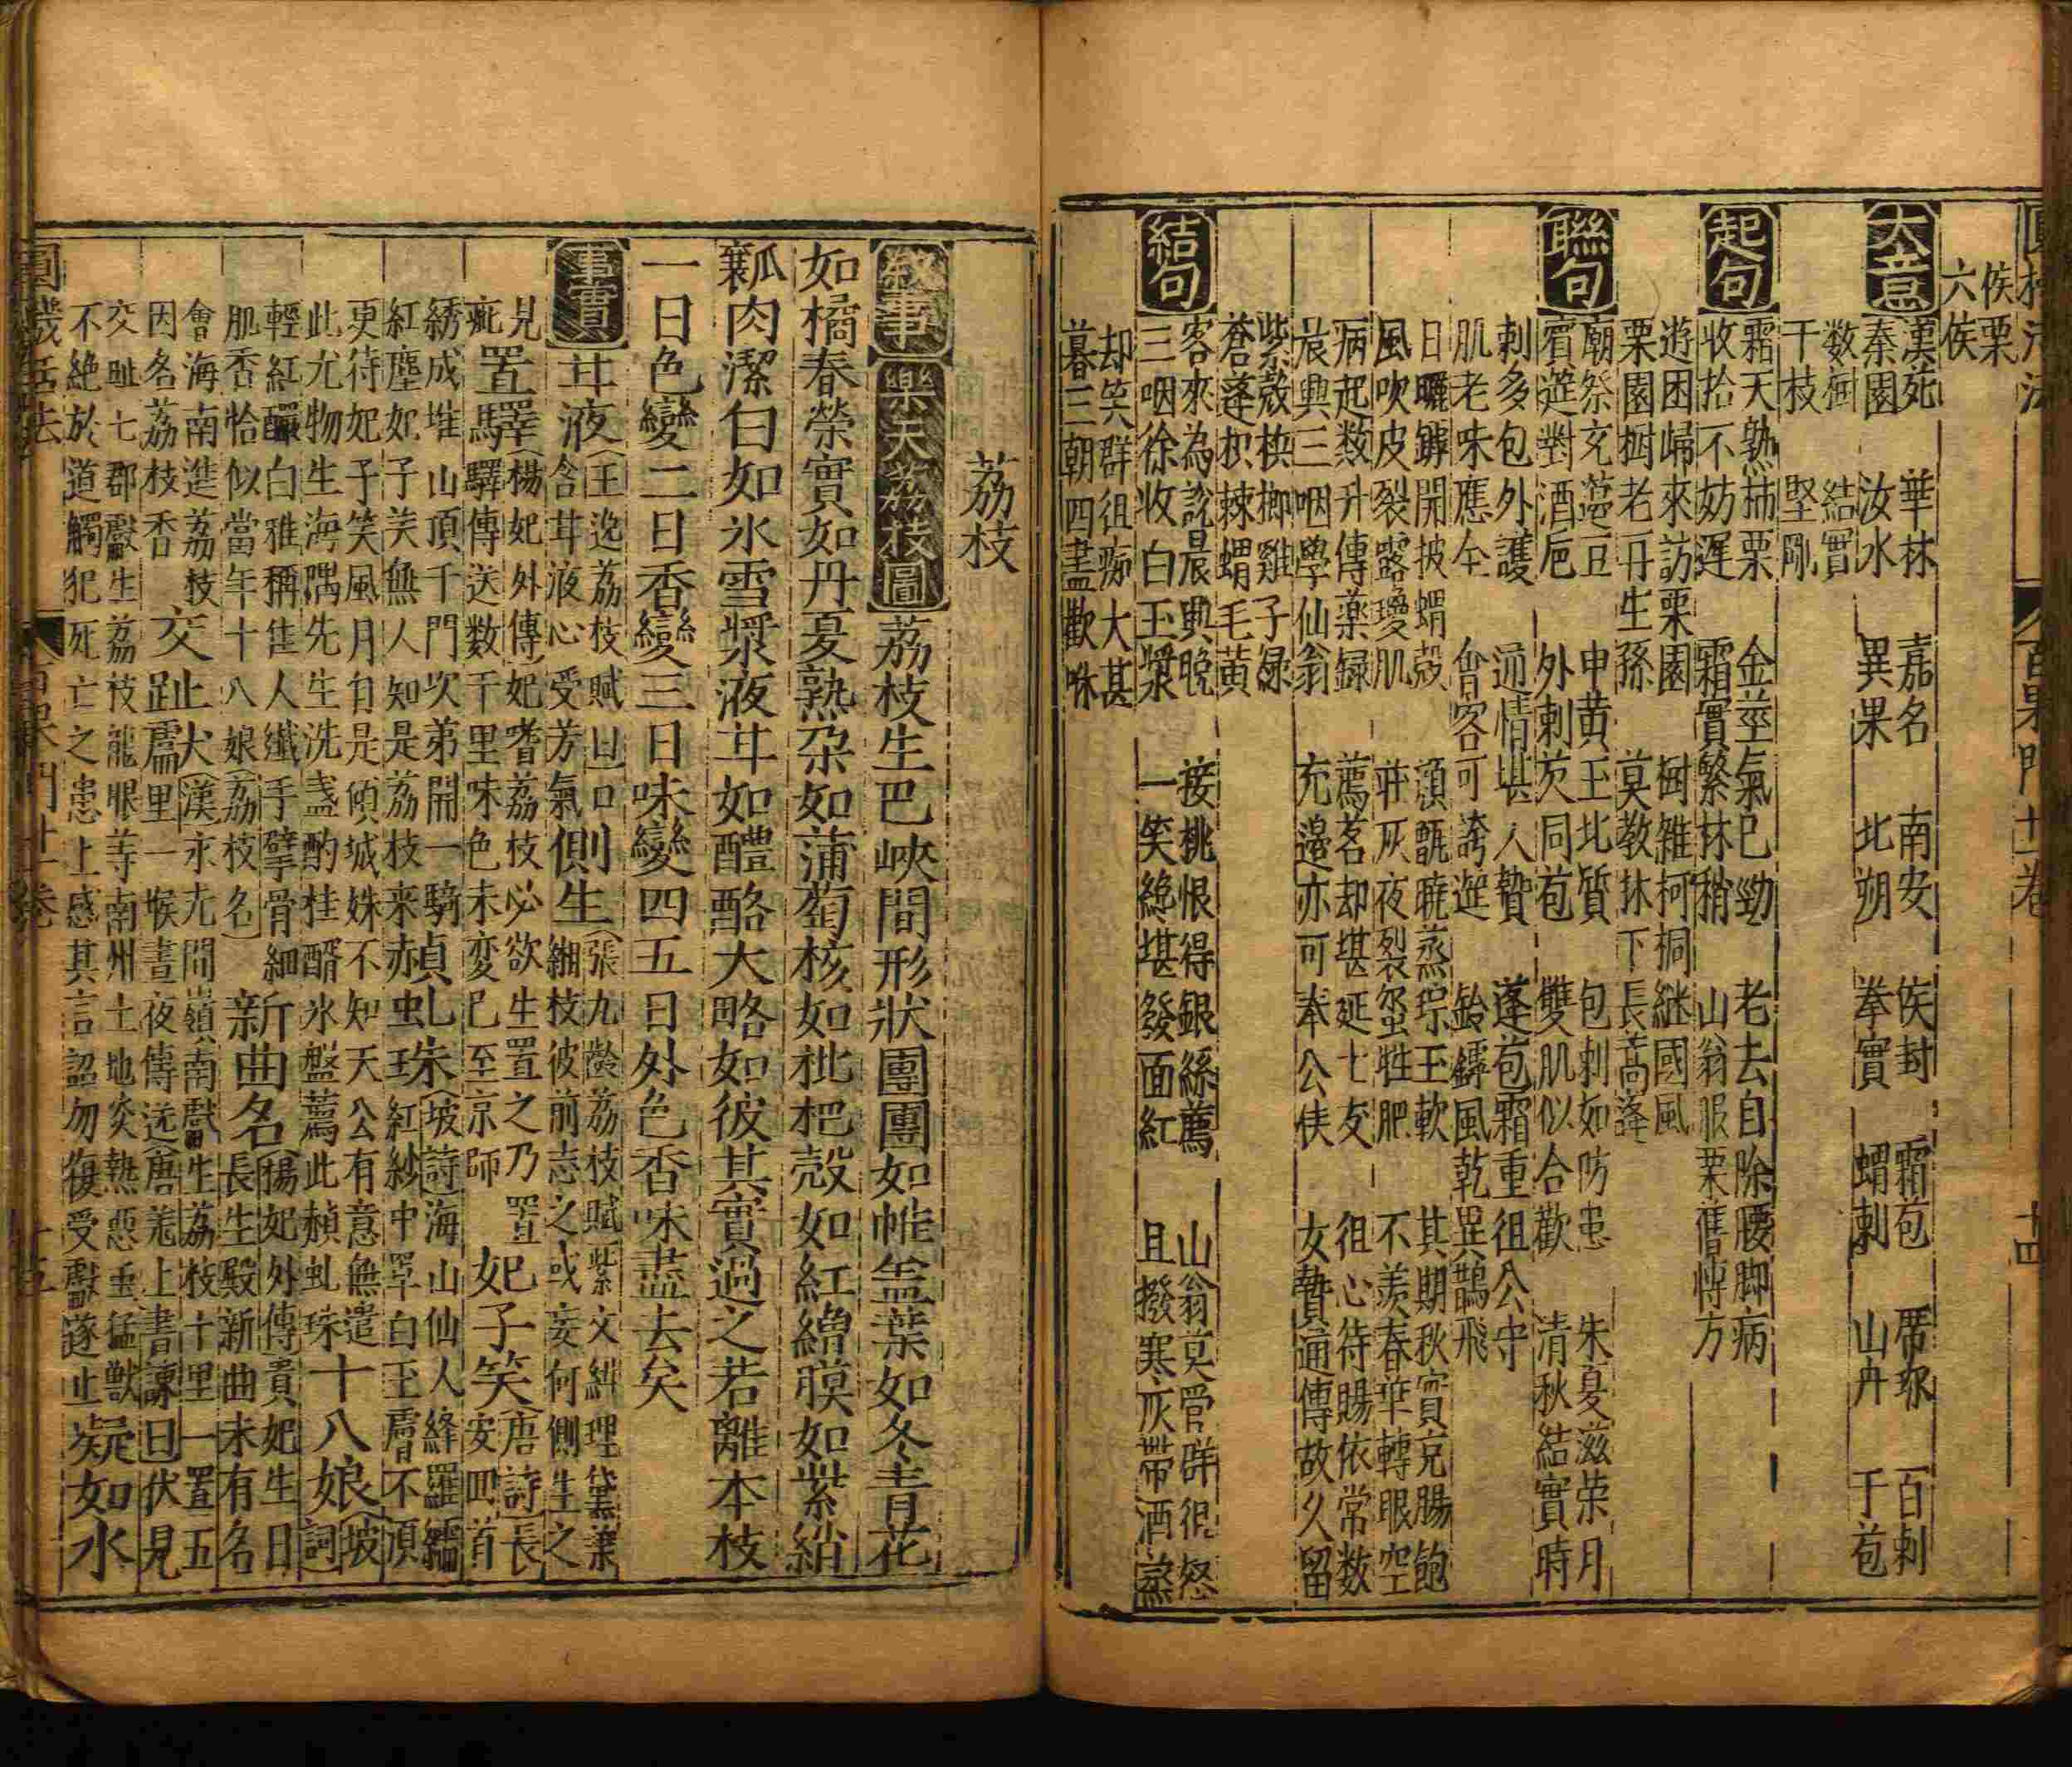 侯栗
六侯
大意
漢苑　華林　嘉名　南安　侯封　霜苞　席珎　百刺
秦園　汝水　異果　北朔　拳實　蝟刺　山舟　于苞
数樹　結實
干枝　堅剛
起句
霜天熟柿栗　金莖氣已勁　老去自除腰脚病
收拾不妨遅　霜實繁林稍　山翁服栗舊傳方
遊困歸來訪栗園　樹雜柯桐継國風
栗園樹老丹生孫　莫教抹下長蒿蓬
聯句
廟祭充籩豆　申黄玉北質　包刺如防患　朱夏滋荣月
賓筵對酒巵　外刺芡同苞　雙肌似合歡　清秋結實時
刺多包外護　適情堪人贄　蓬苞霜重徂公守
肌老味應全　會客可誇筵　鈴鐸風乾異鵲飛
日曬罅開披蝟殻　湏甑曉蒸琮玉軟　其期秋實充腸飽
風吹皮裂露瓊肌　莊灰夜裂　牲肥　不羡春華轉眼空
病起数升傳薬録　薦茗却堪延七友　徂心待賜依常数
晨興三咽學仙翁　充邉亦可奉公侠　女贄通傳故久留
紫殻梹榔雞子緑
蒼蓬枳棘蝟毛黄
結句
客來為說晨興晚　接桃恨得銀絲薦　山翁莫管群狙怒
三咽徐收白玉漿　一笑絶堪發面紅　且撥寒灰帶酒煮
却笑群徂痴大甚
暮三朝四盡歡咻
荔枝
叙事　樂天荔枝圖　荔枝生巴峽間形狀團團如帷盖葉如冬青花
如橘春榮實如丹夏熟朶如蒲萄核如枇杷殻如紅繒膜如紫綃
瓤肉潔白如氷雪漿液甘如醴酪大略如彼其實過之若離本枝
一日色變二日香變三日味變四五日外色香味盡去矣
事實　甘液（王逸荔枝賦曰口含甘液心受芳氣　側生（張九齡荔枝賦紫文紺理黛葉緗枝彼前志之或妄何側生之
見疵　置驛（楊妃外傳）妃嗜荔枝必欲生置之乃置驛傳送数千里味色未変已至京師　妃子笑（唐詩）長安四首
綉成堆山頂千門次弟開一騎紅塵妃子笑無人知是荔枝来　赬虬珠（坡詩）海山仙人絳羅襦紅紗中單白玉膚不須
更待妃子笑風月自是傾城姝不知天公有意無遣此尤物生海隅先生洗盞酌桂醑氷盤薦此赬虬珠　十八娘（坡詞）
輕紅釅白雅稱佳人纖手擘骨細肌香恰似當年十八娘（荔枝名）　新曲名（楊妃外傳貴妃生日長生殿新曲未有名
會海南進荔枝因名荔枝香　交趾犬（漢永尤間嶺南獻生荔枝十里一置五里一堠晝夜傳送（唐羗上書諫曰伏見
交趾七郡獻生荔枝龍眼等南州土地炎熱惡虫猛獸不絶於道觸犯死亡之患上感其言詔勿復受獻遂止　凝如水